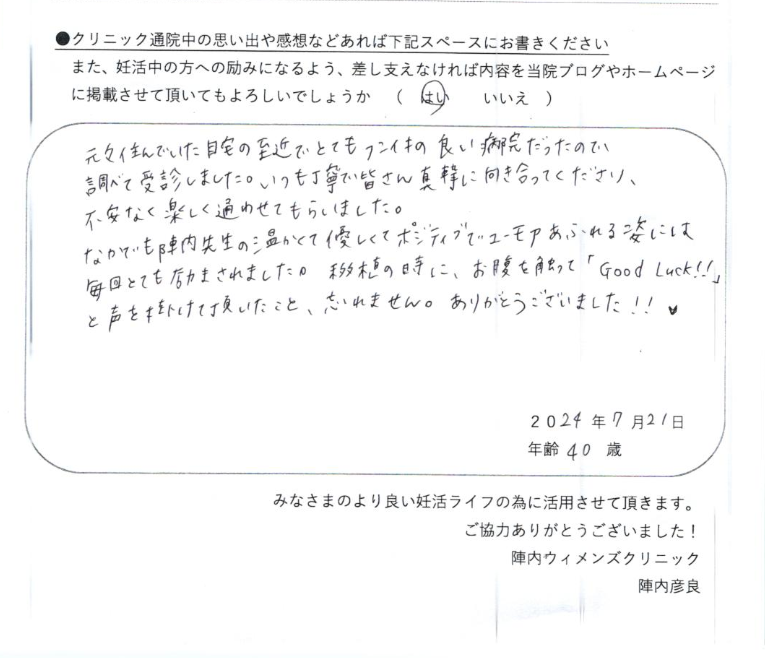 ●クリニック通院中の思い出や感想などあれば下記スペースにお書きください
また、妊活中の方への励みになるよう、差し支えなければ内容を当院ブログやホームページ
に掲載させて頂いてもよろしいでしょうか （ はい いいえ ）
元々住んでいた自宅の至近でとてもフンイキの良い病院だったので
調べて受診しました。いつも丁寧で皆さん真摯に向き合ってくださり、
不安なく楽しく通わせてもらいました。
なかでも陣内先生の温かくて優しくてポジティブでユーモアあふれる姿には
毎回とても励まされました。移植の時に、お腹を触って「Good Luck!!」
と声を掛けて頂いたこと、忘れません。ありがとうございました!! ♥
2024年7月21日
年齢 40 歳
みなさまのより良い妊活ライフの為に活用させて頂きます。
ご協力ありがとうございました！
陣内ウィメンズクリニック
陣内彦良